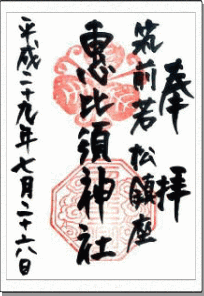 奉拝
筑前若松鎮座
恵比須神社
平成二十九年七月二十六日